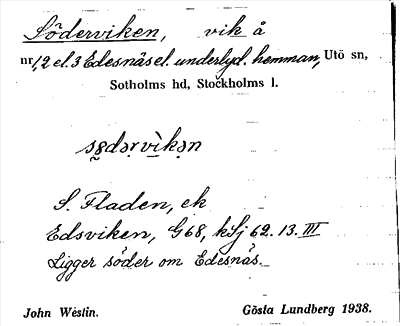 Söderviken, vik å
nr 1, 2 el. 3 Edesnäs el. underlyd. hemman, Utö sn,
Sotholms hd, Stockholms l.
sø̱dərvìkən
S. Fladen, ek
Edsviken, G68, kSj 62. 13. III
Ligger söder om Edesnäs.
John Westin. Gösta Lundberg 1938.